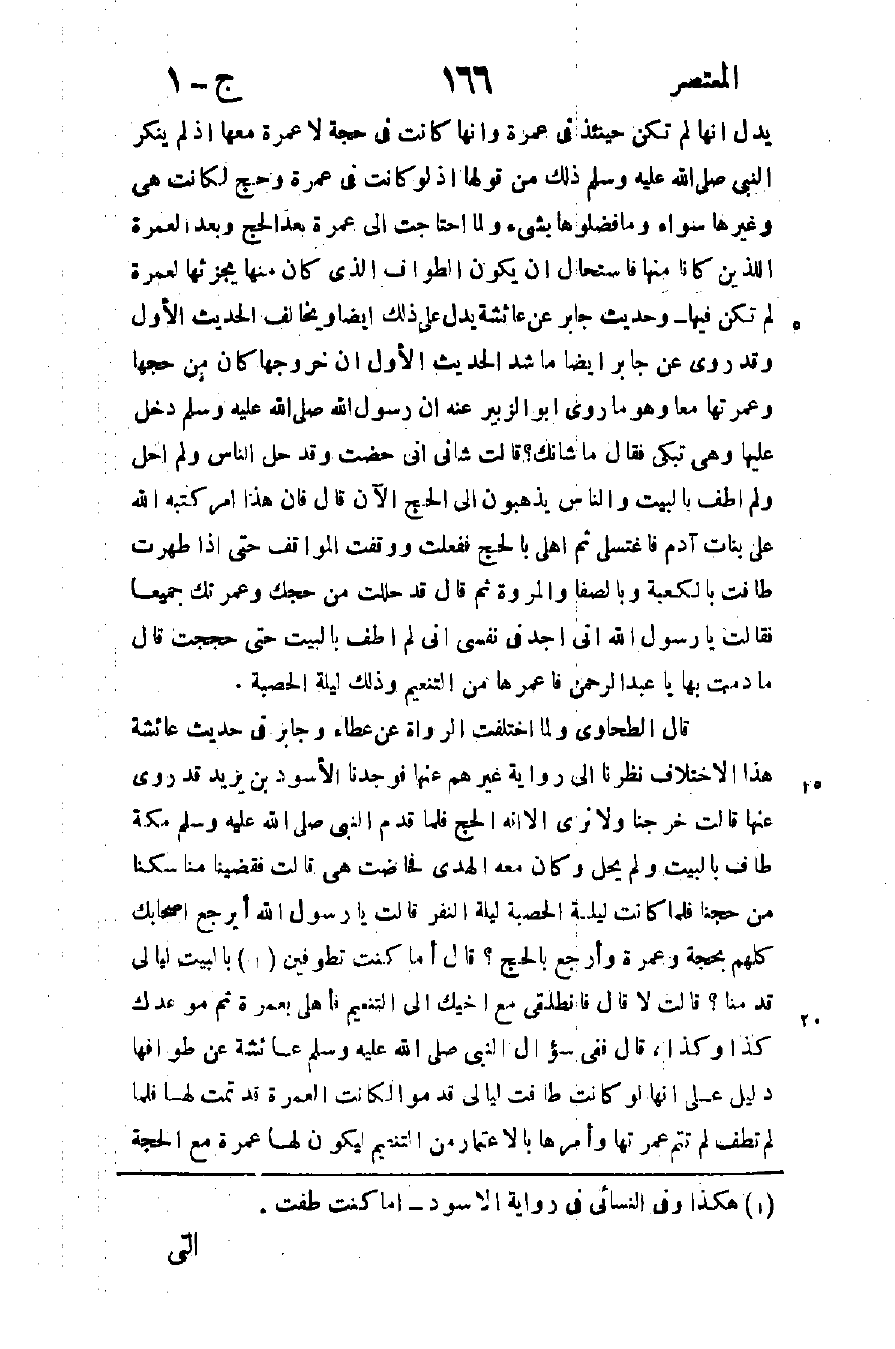 المعتصر ١٦٦ ج - ١
يدل انها لم تكن حينئذ فى عمرة وانها كانت فى حجة لا عمرة معها اذ لم ينكر
النبى صلى الله عليه وسلم ذلك من قولها اذ لو كانت فى عمرة وحج لكانت هى
وغيرها سواء وما فضلوها بشىء ولما احتاجت الى عمرة بعد الحج وبعد العمرة
اللذين كانا منها فاستحال ان يكون الطواف الذى كان منها يجزئها لعمرة
لم تكن فيها ـ وحديث جابر عن عائشة يدل على ذلك ايضا ويخالف الحديث الأول ٥
وقد روى عن جابر ايضا ما شد الحديث الأول ان خروجها كان من حجها
وعمرتها معا وهو ما روى ابو الزبير عنه ان رسول الله صلى الله عليه وسلم دخل
عليها وهى تبكى فقال ما شانك؟ قالت شانى انى حضت وقد حل الناس ولم احل
ولم اطف بالبيت والناس يذهبون الى الحج الآن قال فان هذا امر كتبه الله
على بنات آدم فاغتسلى ثم اهلى بالحج ففعلت ووقفت المواقف حتى اذا طهرت
طافت بالكعبة وبالصفا والمروة ثم قال قد حللت من حجك وعمرتك جميعا
فقالت يا رسول الله انى اجد فى نفسى انى لم اطف بالبيت حتى حججت قال
ما دمت بها يا عبدالرحمن فاعمرها من التنعيم وذلك ليلة الحصبة .
قال الطحاوى ولما اختلفت الرواة عن عطاء وجابر فى حديث عائشة
هذا الاختلاف نظرنا الى رواية غيرهم عنها فوجدنا الأسود بن يزيد قد روى ١٥
عنها قالت خرجنا ولا نرى الا انه الحج فلما قدم النبى صلى الله عليه وسلم مكة
طاف بالبيت ولم يحل وكان معه الهدى فحاضت هى قالت فقضينا مناسكنا
من حجنا فلما كانت ليلة الحصبة ليلة النفر قالت يا رسول الله أيرجع اصحابك
كلهم بحجة وعمرة وأرجع بالحج ؟ قال أما كنت تطوفين (١) بالبيت ليالى
قدمنا ؟ قالت لا قال فانطلقى مع اخيك الى التنعيم فأهلى بعمرة ثم موعدك ٢٠
كذا وكذا، قال ففى سؤال النبى صلى الله عليه وسلم عائشة عن طوافها
دليل على انها لو كانت طافت ليالى قدموا لكانت العمرة قد تمت لها فلما
لم تطف لم تتم عمرتها وأمرها بالاعتمار من التنعيم ليكون لها عمرة مع الحجة
(١) هكذا وفى النسائى فى رواية الاسود ـ اما كنت طفت .
التى